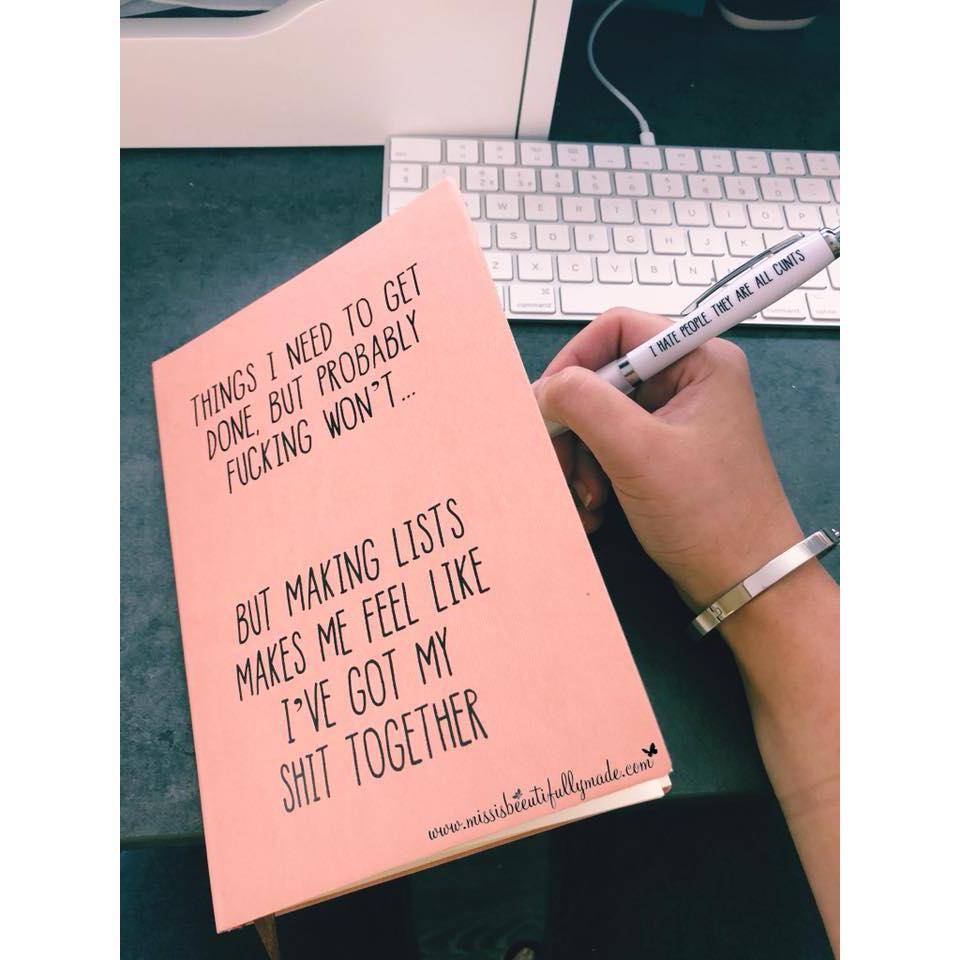 THINGS I NEED TO GET
DONE, BUT PROBABLY
FUCKING WON'T...
BUT MAKING LISTS
MAKES ME FEEL LIKE
I'VE GOT MY
SHIT TOGETHER
www.missisbeeutifullymade.com
I HATE PEOPLE. THEY ARE ALL CUNTS
W E R T Y U I O P
S D F G H J K
Z X C V B N
command
command
option